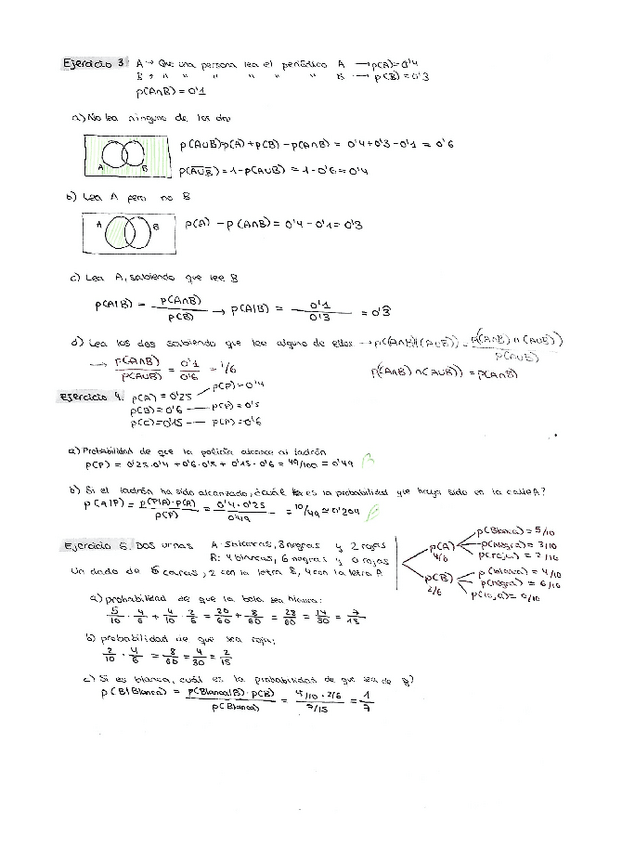 Ejercicio 3 A → Que una persona lea el periódico A → p(A)=0'4
B → " " " " " " B → p(B)=0'3
p(A∩B)=0'1
a) No lea ninguno de los dos
A B
p(A∪B)=p(A)+p(B)-p(A∩B) = 0'4+0'3-0'1 = 0'6
p(A∪B)=1-p(A∪B) = 1-0'6=0'4
b) Lea A pero no B
A B
p(A) - p(A∩B) = 0'4-0'1=0'3
c) Lea A, sabiendo que lee B
p(A|B) = p(A∩B) / p(B) → p(A|B) = 0'1 / 0'3 = 0'3
d) Lea los dos sabiendo que lee alguno de ellos → p((A∩B)|(A∪B)) = p((A∩B)∩(A∪B)) / p(A∪B)
→ p(A∩B) / p(A∪B) = 0'1 / 0'6 = 1/6
p((A∩B)∩(A∪B)) = p(A∩B)
Ejercicio 4. p(A)=0'25 — p(P)=0'4
p(B)=0'6 — p(P)=0'5
p(C)=0'15 — p(P)=0'6
a) Probabilidad de que la policía alcance al ladrón
p(P) = 0'25·0'4 + 0'6·0'5 + 0'15·0'6 = 49/100 = 0'49
b) Si el ladrón ha sido alcanzado, ¿cuál es la probabilidad que haya sido en la calle A?
p(A|P) = p(P|A)·p(A) / p(P) = 0'4·0'25 / 0'49 = 10/49 ≈ 0'204
Ejercicio 6. Dos urnas A: 5 blancas, 3 negras y 2 rojas
B: 4 blancas, 6 negras y 0 rojas
Un dado de 6 caras, 2 con la letra B, 4 con la letra A
p(A) 4/6
p(Blanca) = 5/10
p(Negra) = 3/10
p(roja) = 2/10
p(B) 2/6
p(blanca) = 4/10
p(negra) = 6/10
p(roja) = 0/10
a) probabilidad de que la bola sea blanca:
5/10 · 4/6 + 4/10 · 2/6 = 20/60 + 8/60 = 28/60 = 14/30 = 7/15
b) probabilidad de que sea roja:
2/10 · 4/6 = 8/60 = 4/30 = 2/15
c) Si es blanca, cuál es la probabilidad de que sea de B?
p(B|Blanca) = p(Blanca|B)·p(B) / p(Blanca) = 4/10·2/6 / 7/15 =